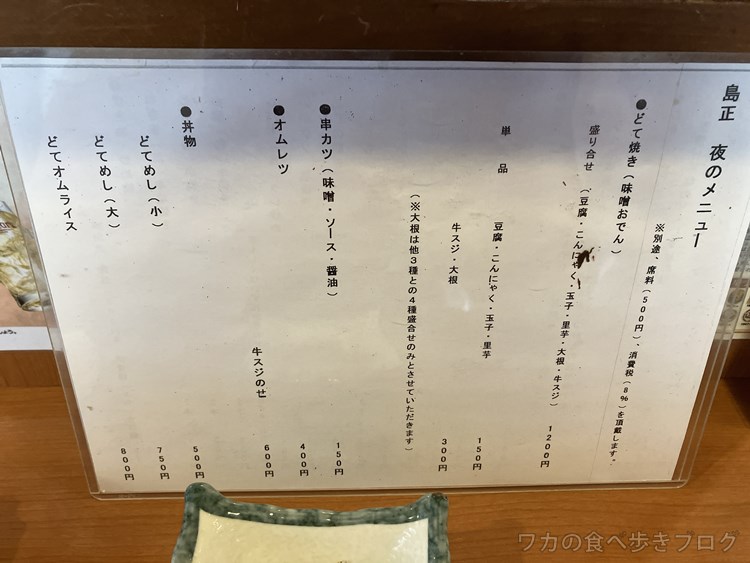 島正　夜のメニュー
※別途、席料（500円）、消費税（8%）を頂戴します。
●どて焼き（味噌おでん）
盛り合せ（豆腐・こんにゃく・玉子・里芋・大根・牛スジ）　1200円
単品　豆腐・こんにゃく・玉子・里芋　150円
牛スジ・大根　300円
（※大根は他3種との4種盛合せのみとさせていただきます）
●串カツ（味噌・ソース・醤油）　150円
●オムレツ　400円
牛スジのせ　600円
●丼物
どてめし（小）　500円
どてめし（大）　750円
どてオムライス　800円
ワカの食べ歩きブログ